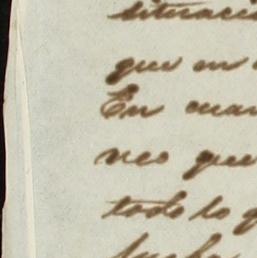 situació
que en
En cuan
neo que
todo lo q
lucha